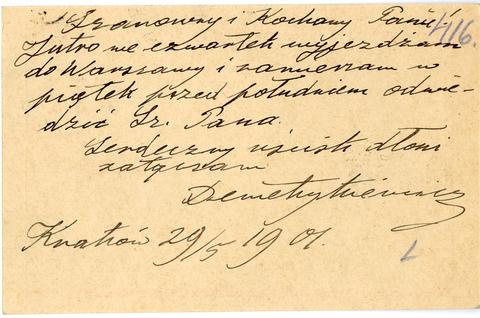 Szanowny i Kochany Panie!
416.
Jutro we czwartek wyjeżdżam
do Warszawy i zamierzam w
piątek przed południem odwie-
dzić Sz. Pana.
Serdeczny uścisk dłoni
załączam
Demetrykiewicz
Kraków 29/5 1901.
L